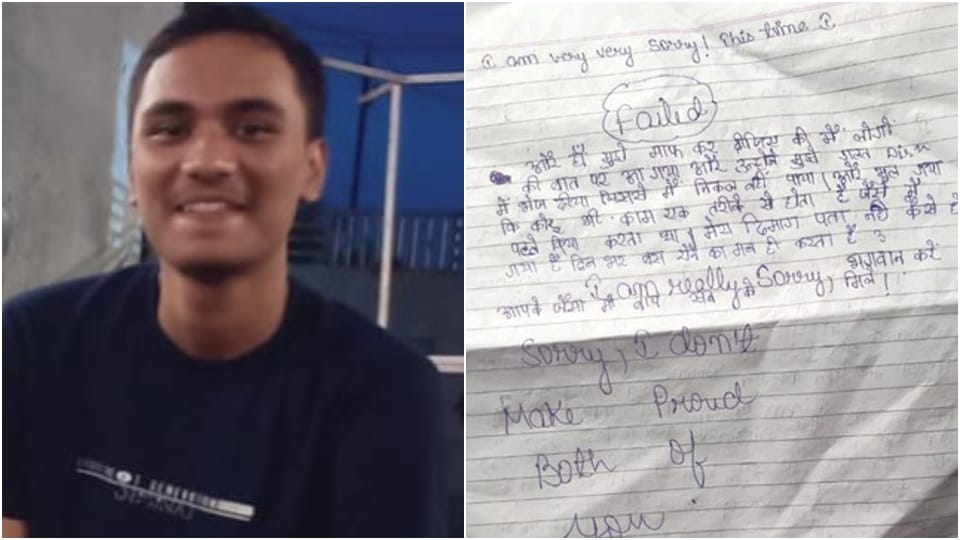 I am very very sorry! This time I
Failed
और हाँ मुझे माफ कर दीजिए की मैं लोगों
की बात पर आ गया और उन्होंने मुझे गलत
में भेज दीया जिससे मैं निकल नहीं पाया। और भूल गया
कि कोई भी काम एक तरीके से होता है जैसे मैं
पहले किया करता था। मेरा दिमाग पता नहीं कैसे हो
गया है दिन भर बस रोने का मन ही करता है
I am really Sorry, भगवान करें
आपके जैसा माँ बाप सब को मिले!
Sorry, I don't
Make Proud
Both of
you.
GENERATION